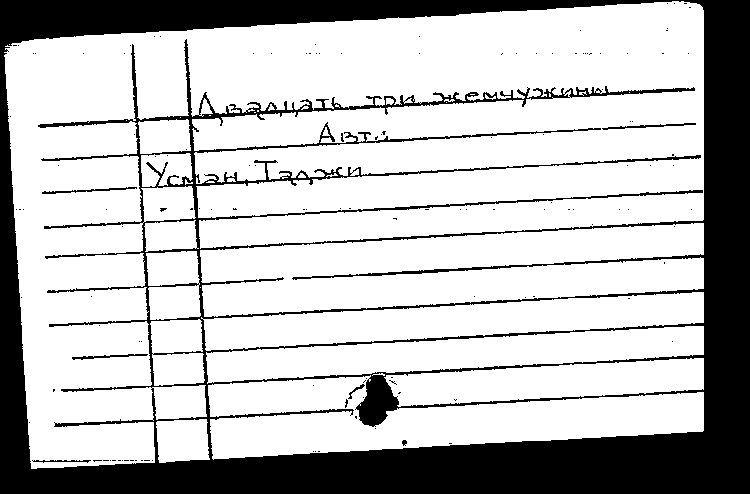 Двадцать три жемчужины
Авт.:
Усман, Таджи